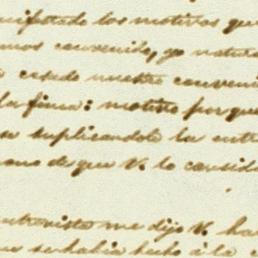 nifestado los motivos que
mos convenido, yo natura
cesado nuestro conveni
la finca: motivo porque
suplicandole la entre
de que V. lo consida
entrevista me dijo V. ha
se habia hecho á la